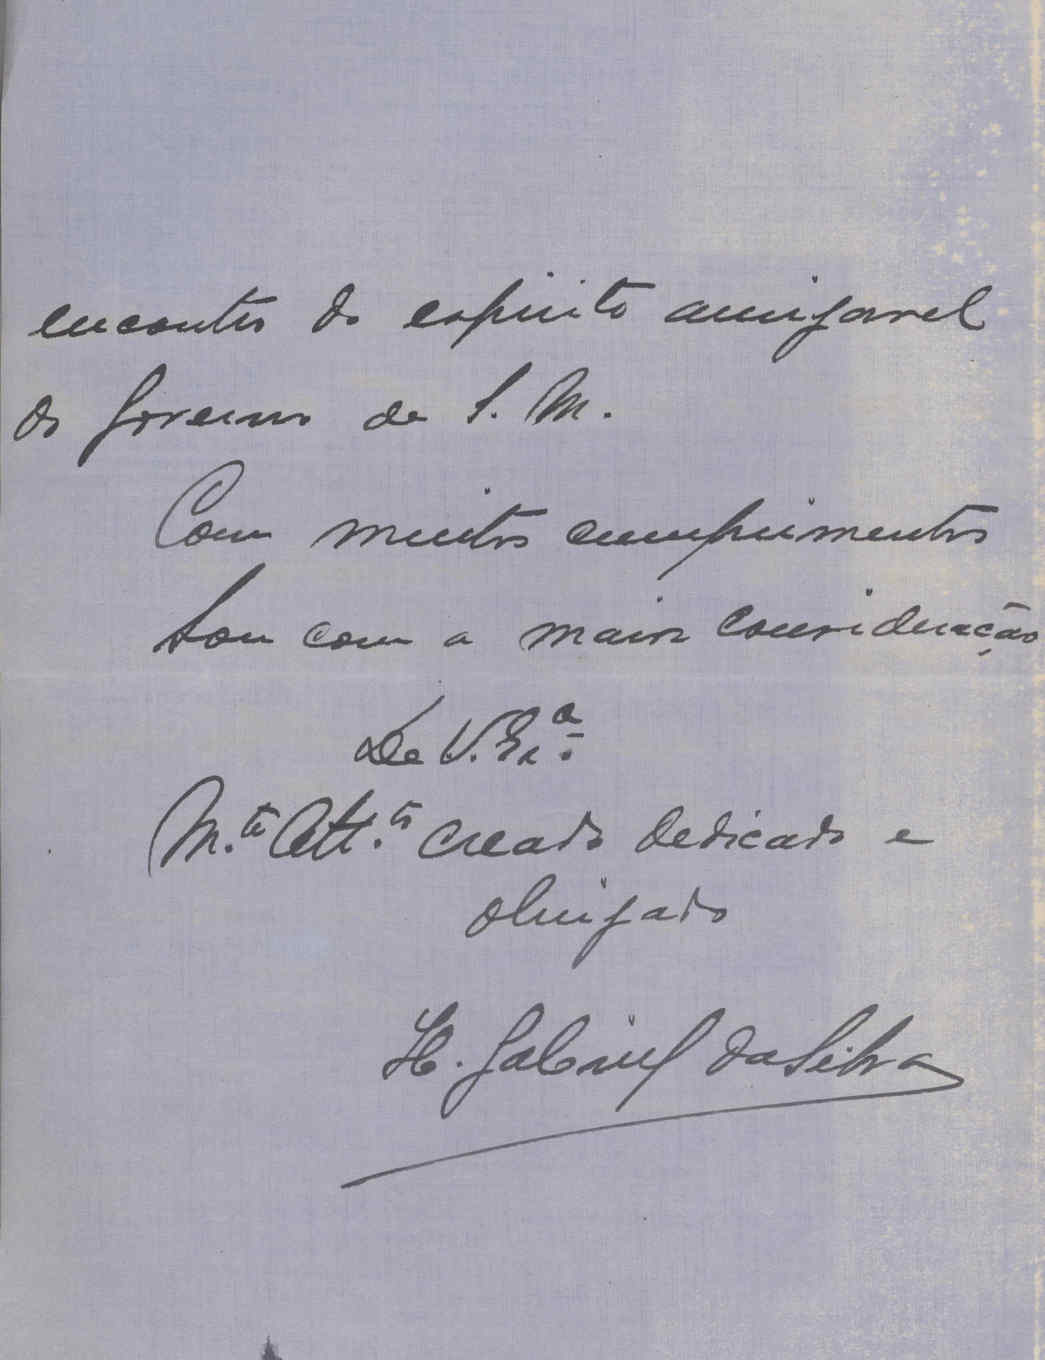 encontro do espirito amigavel
do Governo de S. M.
Com muitos cumprimentos
Sou com a maior consideração
De V. Ex.ª
M.to Att.to creado dedicado e
obrigado
H. Gabriel da Silva